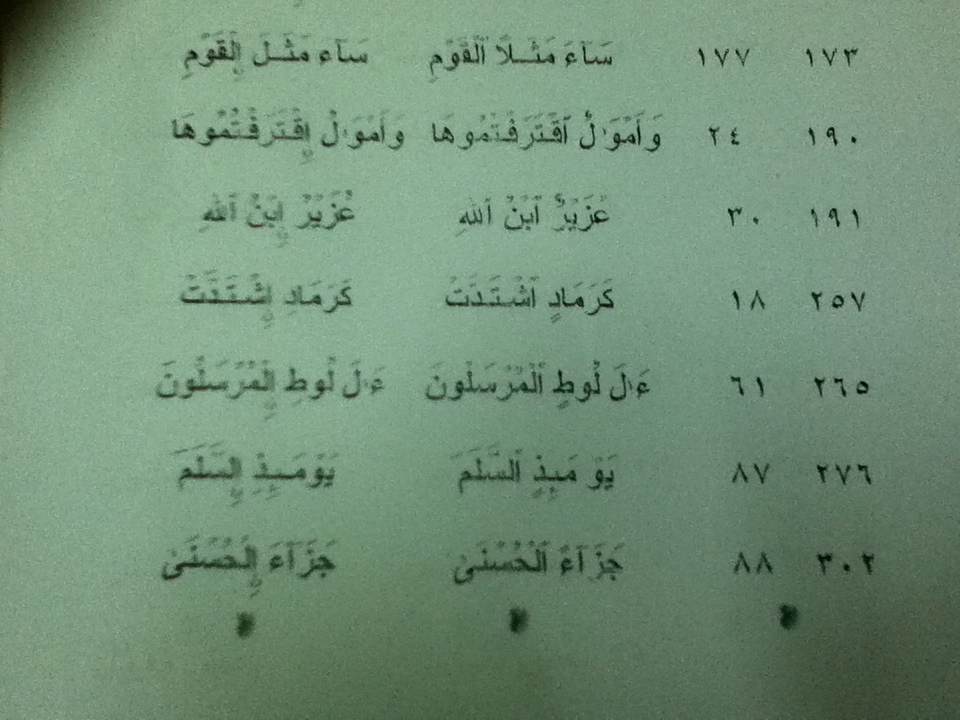 ١٧٣ ١٧٧ سَآءَ مَثَلًا ٱلْقَوْمِ سَآءَ مَثَلَ اِ۬لْقَوْمِ
١٩٠ ٢٤ وَأَمْوَٰلٌ ٱقْتَرَفْتُمُوهَا وَأَمْوَٰلٌ اِ۪قْتَرَفْتُمُوهَا
١٩١ ٣٠ عُزَيْرٌ ٱبْنُ ٱللَّهِ عُزَيْرُ اِ۪بْنُ ٱللَّهِ
٢٥٧ ١٨ كَرَمَادٍ ٱشْتَدَّتْ كَرَمَادٍ اِ۪شْتَدَّتْ
٢٦٥ ٦١ ءَالَ لُوطٍ ٱلْمُرْسَلُونَ ءَالَ لُوطٍ اِ۪لْمُرْسَلُونَ
٢٧٦ ٨٧ يَوْمَئِذٍ ٱلسَّلَمَ يَوْمَئِذٍ اِ۪لسَّلَمَ
٣٠٢ ٨٨ جَزَآءً ٱلْحُسْنَىٰ جَزَآءَ اِ۪لْحُسْنَىٰ